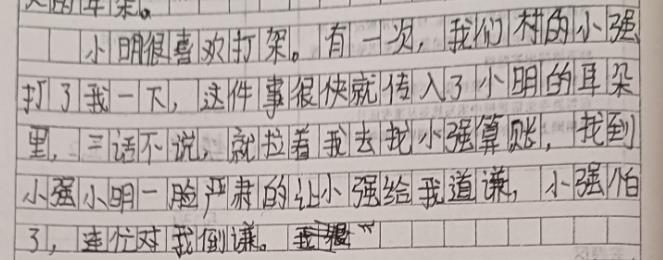 小明很喜欢打架。有一次，我们村的小强
打了我一下，这件事很快就传入了小明的耳朵
里，三话不说，就拉着我去找小强算账，找到
小强小明一脸严肃的让小强给我道谦，小强怕
了，连忙对我倒谦。